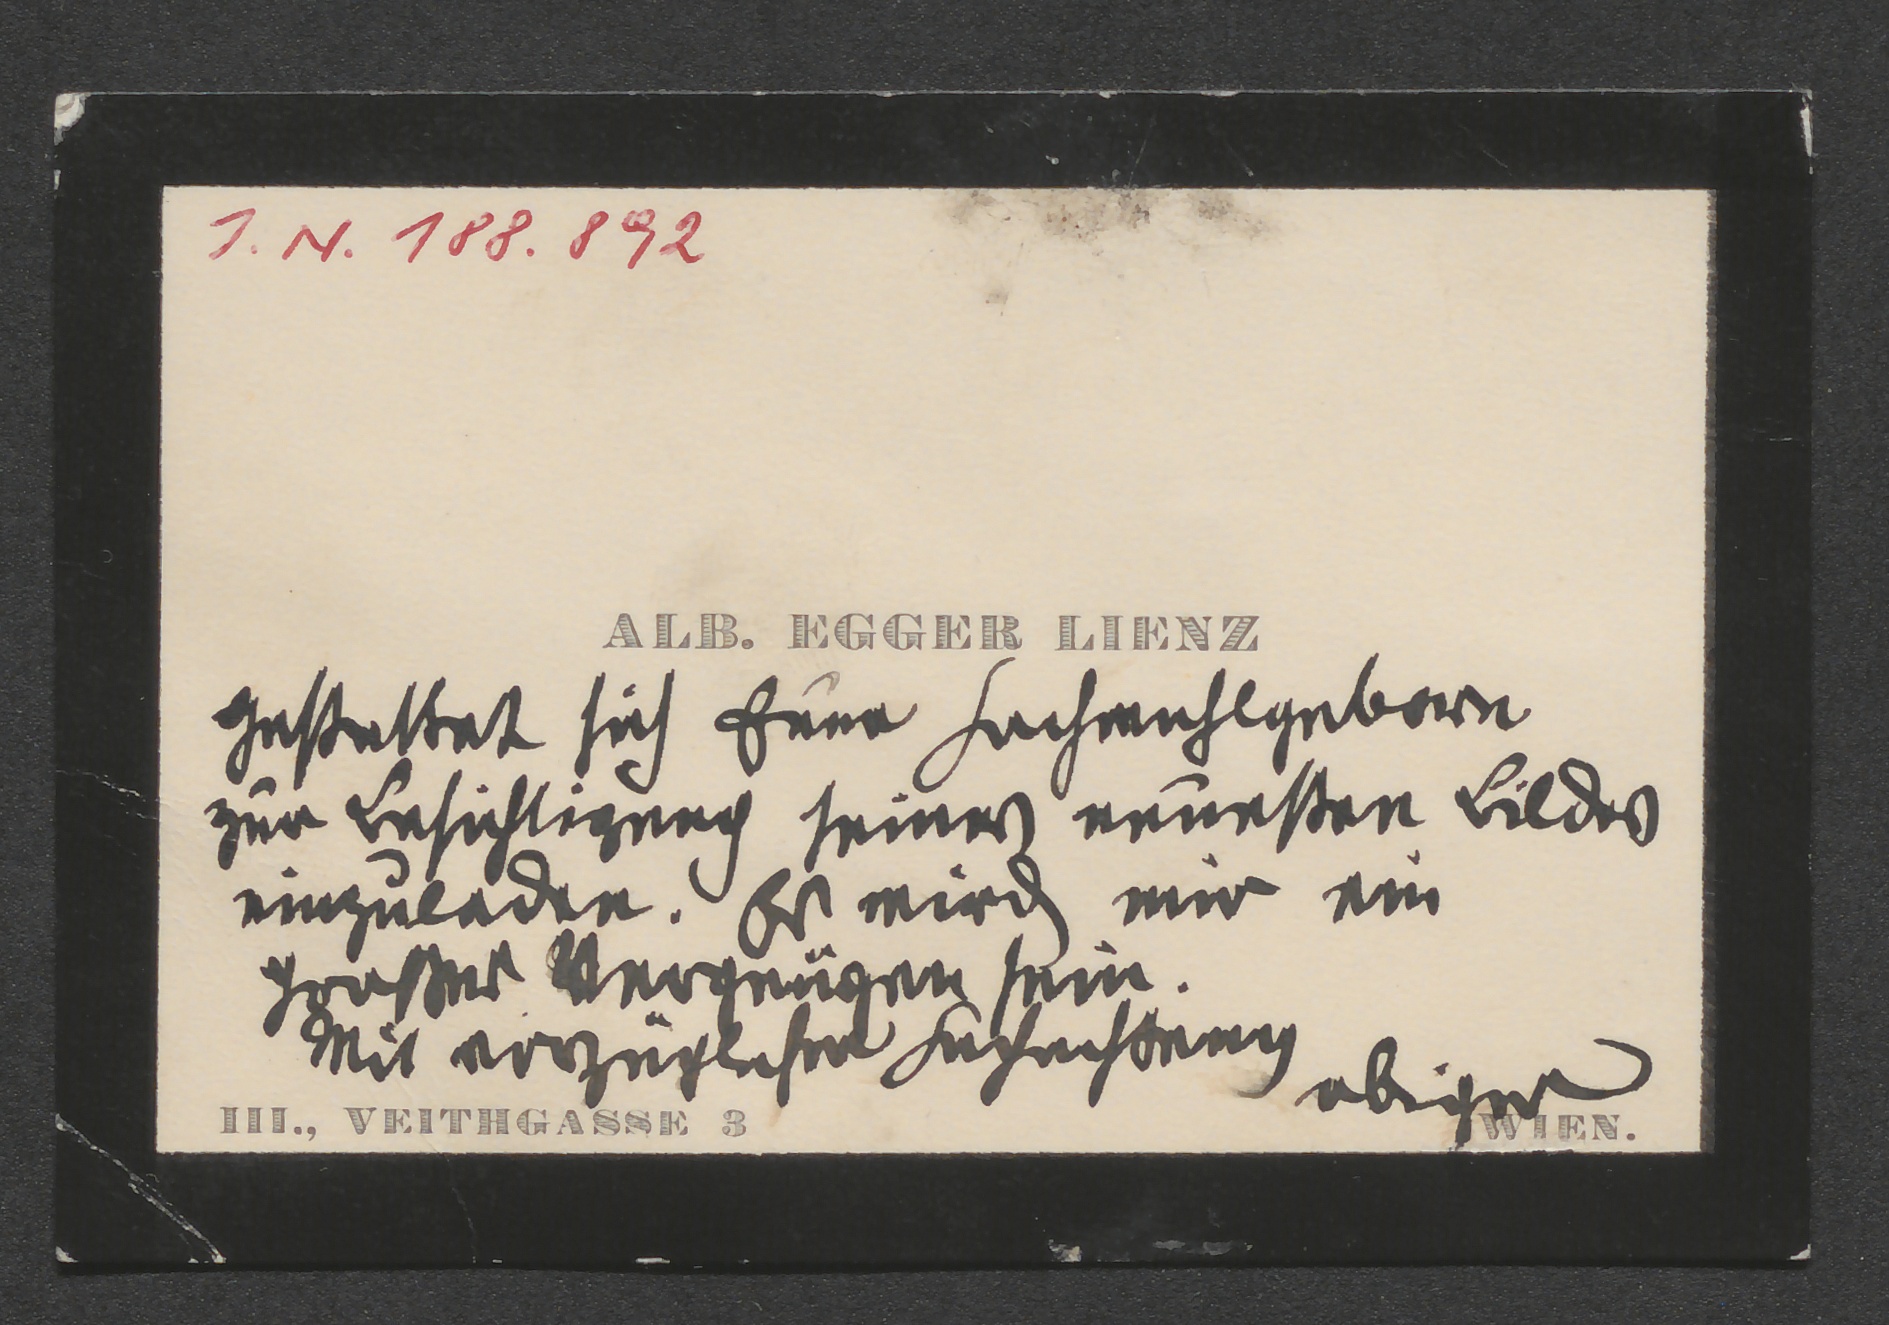 I. N. 188.892
ALB. EGGER LIENZ
gestattet sich Euer Hochwohlgeborn
zur Besichtigung seines neuesten Bildes
einzuladen. Es wird mir ein
großes Vergnügen sein.
Mit vorzüglicher Hochachtung
obiger
III., VEITHGASSE 3 WIEN.